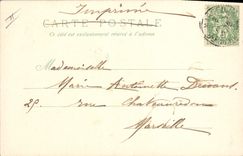 Imprimé
CARTE POSTALE
Ce côté est exclusivement réservé à l'adresse
Mademoiselle
Marie Antoinette
25. rue Chateauredon
Marseille